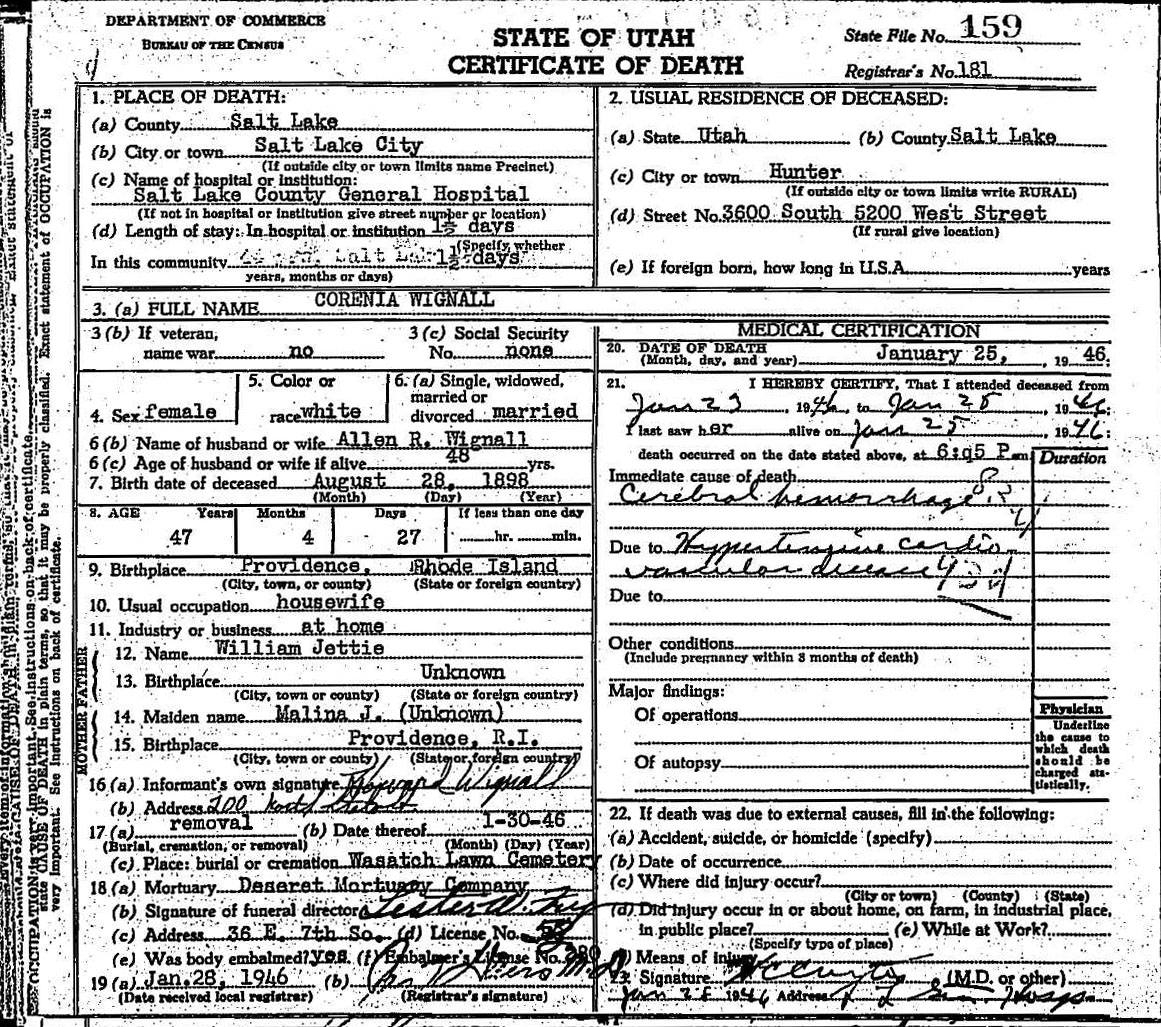 DEPARTMENT OF COMMERCE
BUREAU OF THE CENSUS
STATE OF UTAH
CERTIFICATE OF DEATH
State File No. 159
Registrar's No. 181
1. PLACE OF DEATH:
(a) County Salt Lake
(b) City or town Salt Lake City
(If outside city or town limits name Precinct)
(c) Name of hospital or institution:
Salt Lake County General Hospital
(If not in hospital or institution give street number or location)
(d) Length of stay: In hospital or institution 1½ days
(Specify whether
In this community 1½ days
years, months or days)
2. USUAL RESIDENCE OF DECEASED:
(a) State Utah (b) County Salt Lake
(c) City or town Hunter
(If outside city or town limits write RURAL)
(d) Street No. 3600 South 5200 West Street
(If rural give location)
(e) If foreign born, how long in U.S.A. years
3. (a) FULL NAME CORENIA WIGNALL
3 (b) If veteran,
name war no
3 (c) Social Security
No. none
4. Sex female
5. Color or
race white
6. (a) Single, widowed,
married or
divorced married
6 (b) Name of husband or wife Allen R. Wignall
6 (c) Age of husband or wife if alive 48 yrs.
7. Birth date of deceased August 28, 1898
(Month) (Day) (Year)
8. AGE Years Months Days If less than one day
47 4 27 hr. min.
9. Birthplace Providence, Rhode Island
(City, town, or county) (State or foreign country)
10. Usual occupation housewife
11. Industry or business at home
FATHER
12. Name William Jettie
13. Birthplace Unknown
(City, town or county) (State or foreign country)
MOTHER
14. Maiden name Malina J. (Unknown)
15. Birthplace Providence, R.I.
(City, town or county) (State or foreign country)
16 (a) Informant's own signature Howard Wignall
(b) Address 200
17 (a) removal (b) Date thereof 1-30-46
(Burial, cremation, or removal) (Month) (Day) (Year)
(c) Place: burial or cremation Wasatch Lawn Cemetery
18 (a) Mortuary Deseret Mortuary Company
(b) Signature of funeral director Lester W.
(c) Address 36 E. 7th So. (d) License No. 53
(e) Was body embalmed? yes (f) Embalmer's License No.
19 (a) Jan. 28, 1946 (b)
(Date received local registrar) (Registrar's signature)
MEDICAL CERTIFICATION
20. DATE OF DEATH
(Month, day, and year) January 25, 1946.
21. I HEREBY CERTIFY, That I attended deceased from
Jan 23, 1946, to Jan 25, 1946:
I last saw her alive on Jan 25, 1946
death occurred on the date stated above, at 6:05 P.m.
Duration
Immediate cause of death
Cerebral hemorrhage
Due to Hypertensive cardio
vascular disease
Due to
Other conditions
(Include pregnancy within 3 months of death)
Major findings:
Of operations
Of autopsy
Physician
Underline
the cause to
which death
should be
charged sta-
tistically.
22. If death was due to external causes, fill in the following:
(a) Accident, suicide, or homicide (specify)
(b) Date of occurrence
(c) Where did injury occur?
(City or town) (County) (State)
(d) Did injury occur in or about home, on farm, in industrial place,
in public place? (e) While at Work?
(Specify type of place)
(f) Means of injury
23. Signature (M.D. or other)
Jan 28 1946 Address S L Gen Hosp